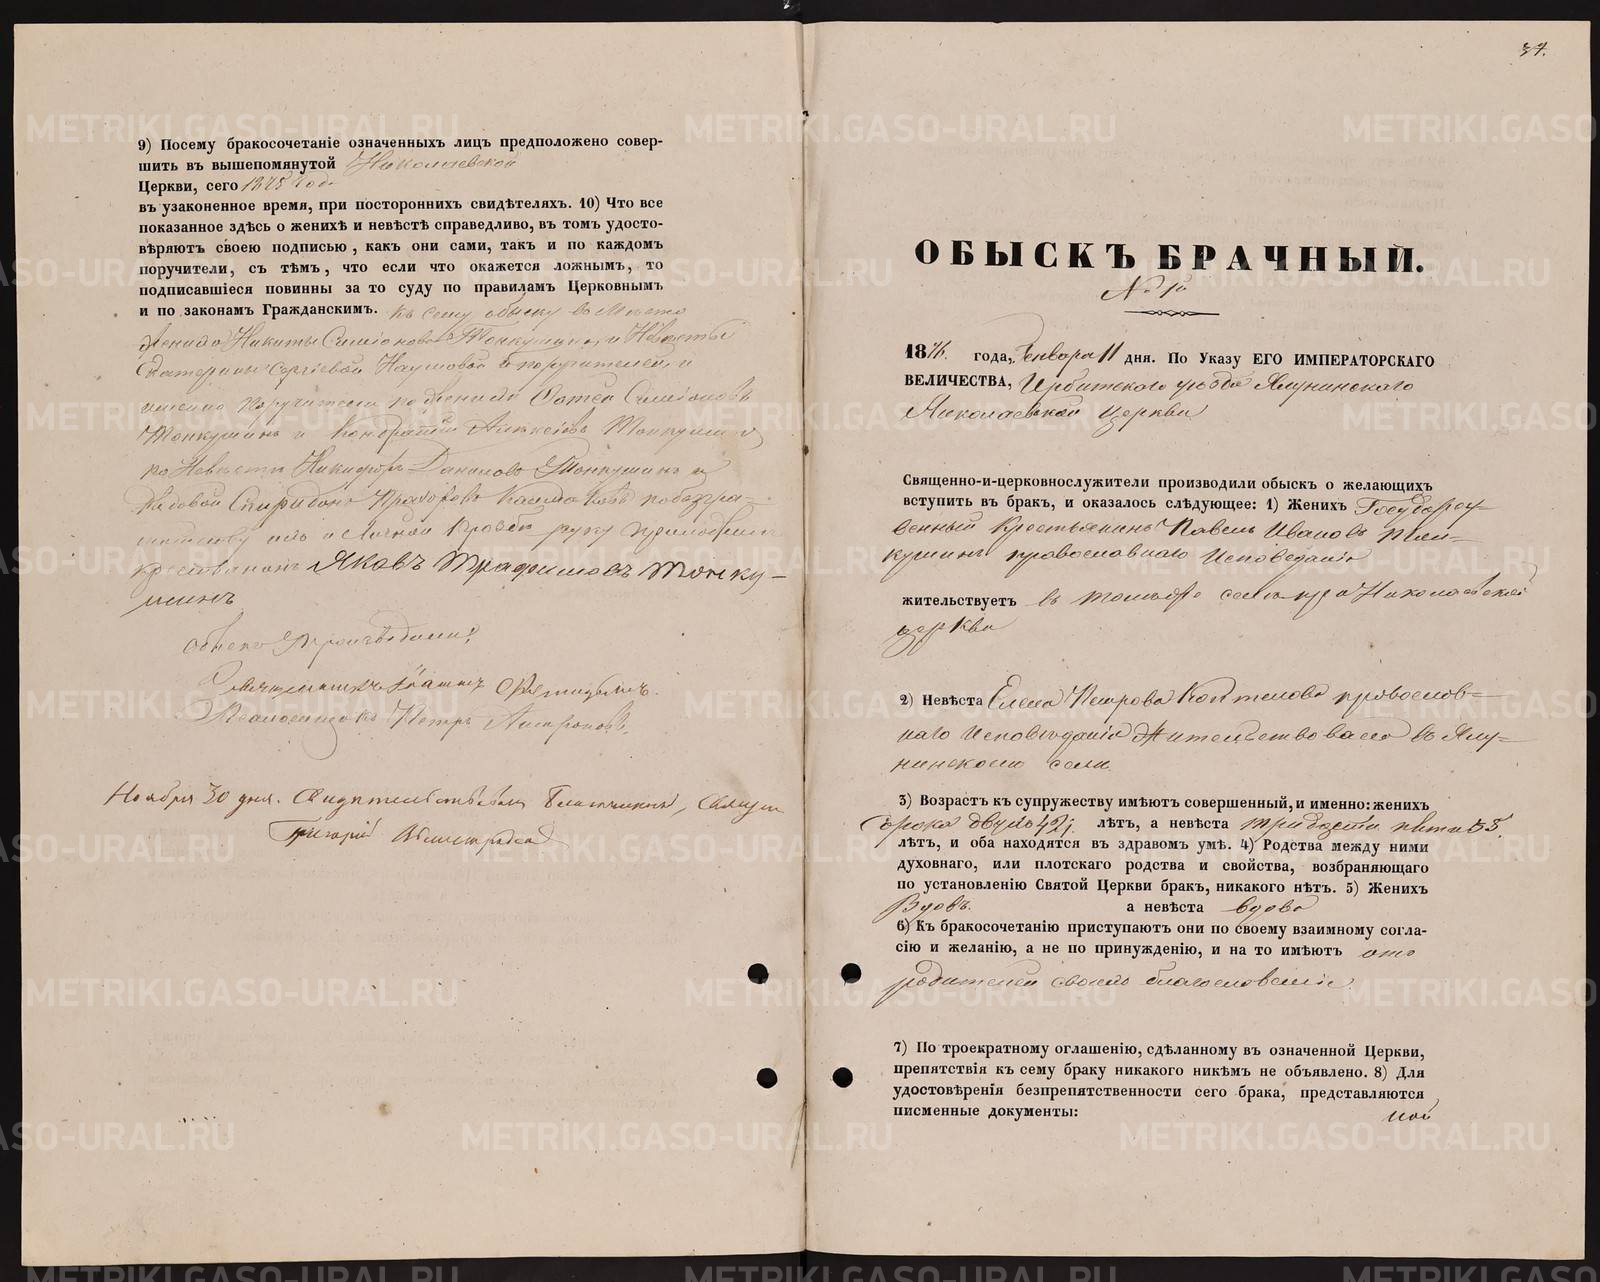 9) Посему бракосочетаніе означенныхъ лицъ предположено совер-
шить въ вышепомянутой Николаевской
Церкви, сего 1875 года
въ узаконенное время, при постороннихъ свидѣтеляхъ. 10) Что все
показанное здѣсь о женихѣ и невѣстѣ справедливо, въ томъ удосто-
вѣряютъ своею подписью, какъ они сами, такъ и по каждомъ
поручители, съ тѣмъ, что если что окажется ложнымъ, то
подписавшіеся повинны за то суду по правиламъ Церковнымъ
и по законамъ Гражданскимъ. Къ сему обыску вместо
жениха Никиты Симіонова Тонкушина, и Невесты
Екатерины Сергіевой Наумовой и поручителей, и
именно поручители по женихе Симіоновъ
Тонкушинъ и Кондратій Алексіевъ Тонкушинъ
по Невесте Никифоръ Даниловъ Тонкушинъ и
Спиридонъ Прохоровъ по безгра-
мотству ихъ и личной прозбе руку приложилъ
крестьянинъ Яковъ Трафимовъ Тонку-
шинъ
обыскъ производили:
Священникъ Іоаннъ
Псаломщикъ Петръ
Ноября 30 дня. Свидетельствовалъ Благочинный, Священ
Григорій
34.
ОБЫСКЪ БРАЧНЫЙ.
№ 1й
1876 года, Генваря 11 дня. По Указу ЕГО ИМПЕРАТОРСКАГО
ВЕЛИЧЕСТВА, Ирбитскаго уезда Ялунинскаго
Николаевской церкви
Священно-и-церковнослужители производили обыск о желающихъ
вступить въ бракъ, и оказалось слѣдующее: 1) Женихъ Государст
венный Крестьянинъ Павелъ Ивановъ Тон-
кушинъ православнаго Исповеданія
жительствуетъ въ томъже селе Николаевской
церкви
2) Невѣста Елена Петрова православ-
наго Исповеданія Жительствовала въ Ялу-
нинскомъ селе
3) Возрастъ къ супружеству имѣютъ совершенный, и именно: женихъ
сорока двухъ 42х лѣтъ, а невѣста тридцати пяти 35.
лѣтъ, и оба находятся въ здравомъ умѣ. 4) Родства между ними
духовнаго, или плотскаго родства и свойства, возбраняющаго
по установленію Святой Церкви бракъ, никакого нѣтъ. 5) Женихъ
Вдовъ. а невѣста вдова
6) Къ бракосочетанію приступаютъ они по своему взаимному согла-
сію и желанію, а не по принужденію, и на то имѣютъ отъ
родителей своихъ благословеніе
7) По троекратному оглашенію, сдѣланному въ означенной Церкви,
препятствія къ сему браку никакого никѣмъ не объявлено. 8) Для
удостовѣренія безпрепятственности сего брака, представляются
писменные документы:
METRIKI.GASO-URAL.RU